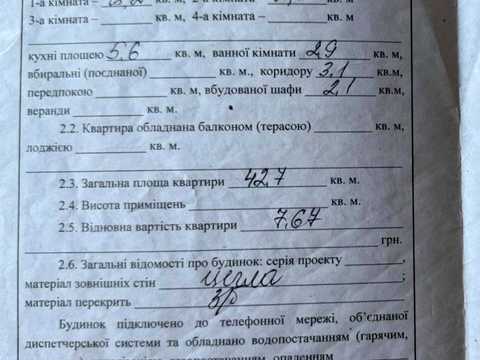 1-а кімната –
3-я кімната – кв. м, 4-а кімната – кв. м
кухні площею 5,6 кв. м, ванної кімнати 2,9 кв. м,
вбиральні (поєднаної) кв. м., коридору 3,1 кв.м,
передпокою кв. м, вбудованої шафи 2,1 кв.м,
веранди кв. м.
2.2. Квартира обладнана балконом (терасою) кв. м,
лоджією кв. м.
2.3. Загальна площа квартири 42,7 кв. м.
2.4. Висота приміщень кв. м.
2.5. Відновна вартість квартири 7,67
грн.
2.6. Загальні відомості про будинок: серія проекту ,
матеріал зовнішніх стін цегла ;
матеріал перекрить з/б
Будинок підключено до телефонної мережі, об'єднаної
диспетчерської системи та обладнано водопостачанням (гарячим,
газопостачанням, опаленням